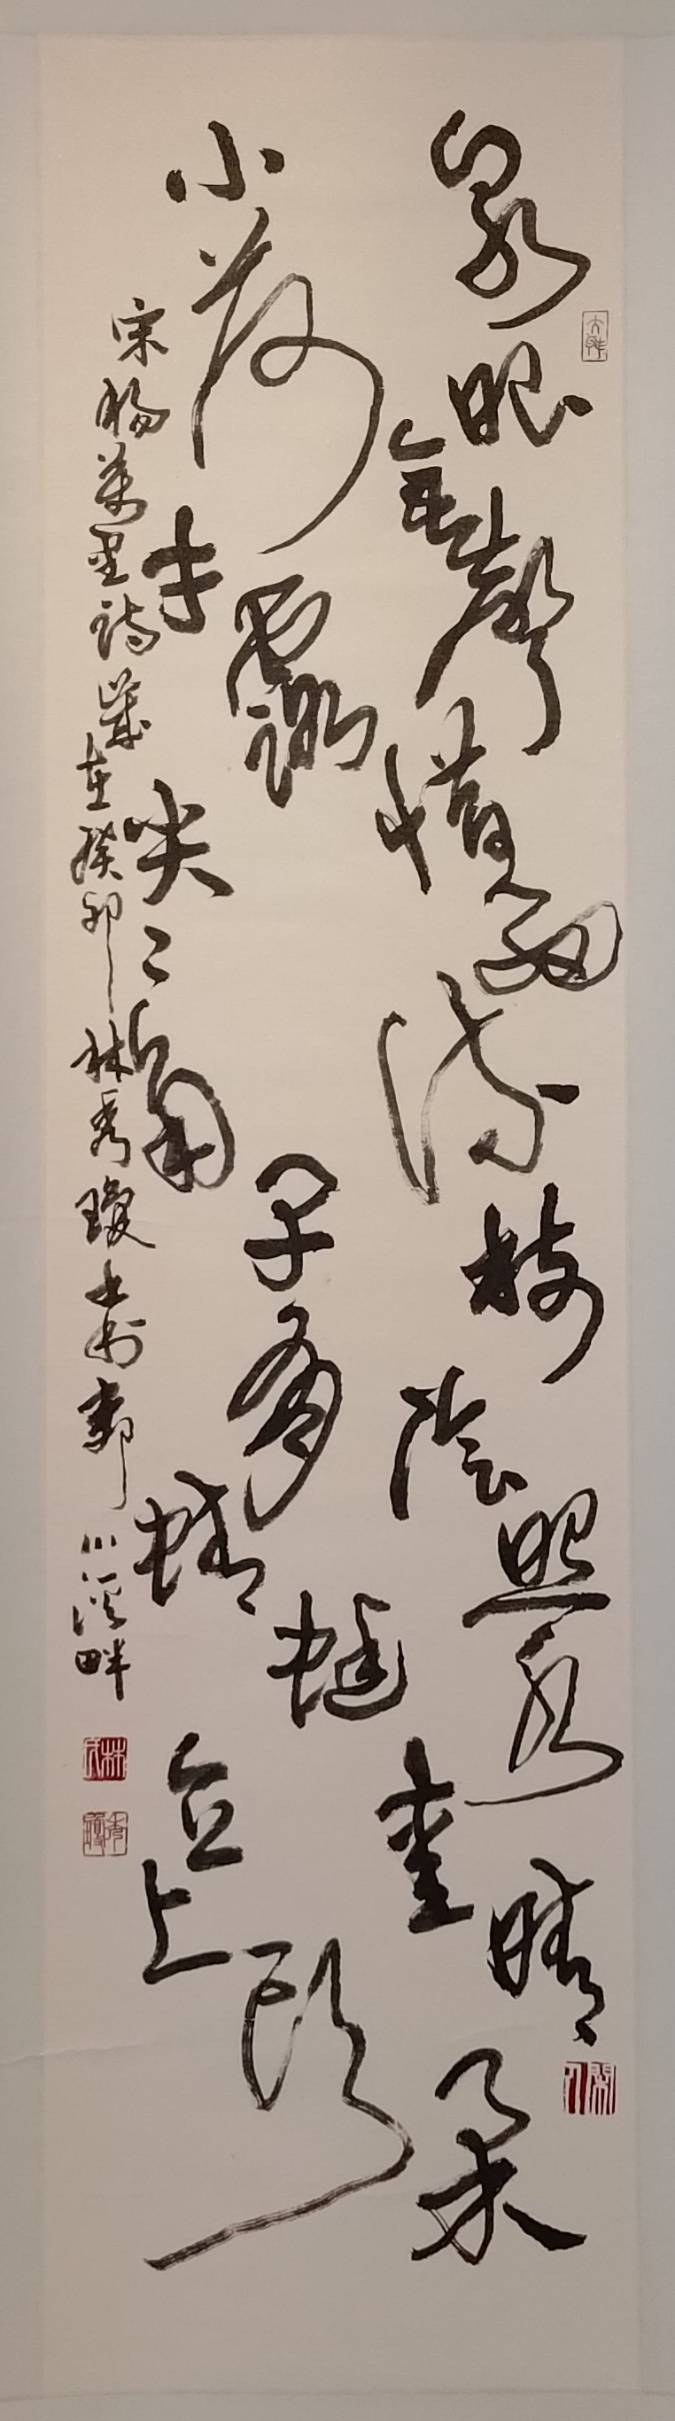 泉眼無聲惜細流樹陰照水愛晴柔
小荷才露尖〻角早有蜻蜓立上頭
宋楊萬里詩歲在癸卯林秀瓊書於川溪畔
林氏
秀瓊